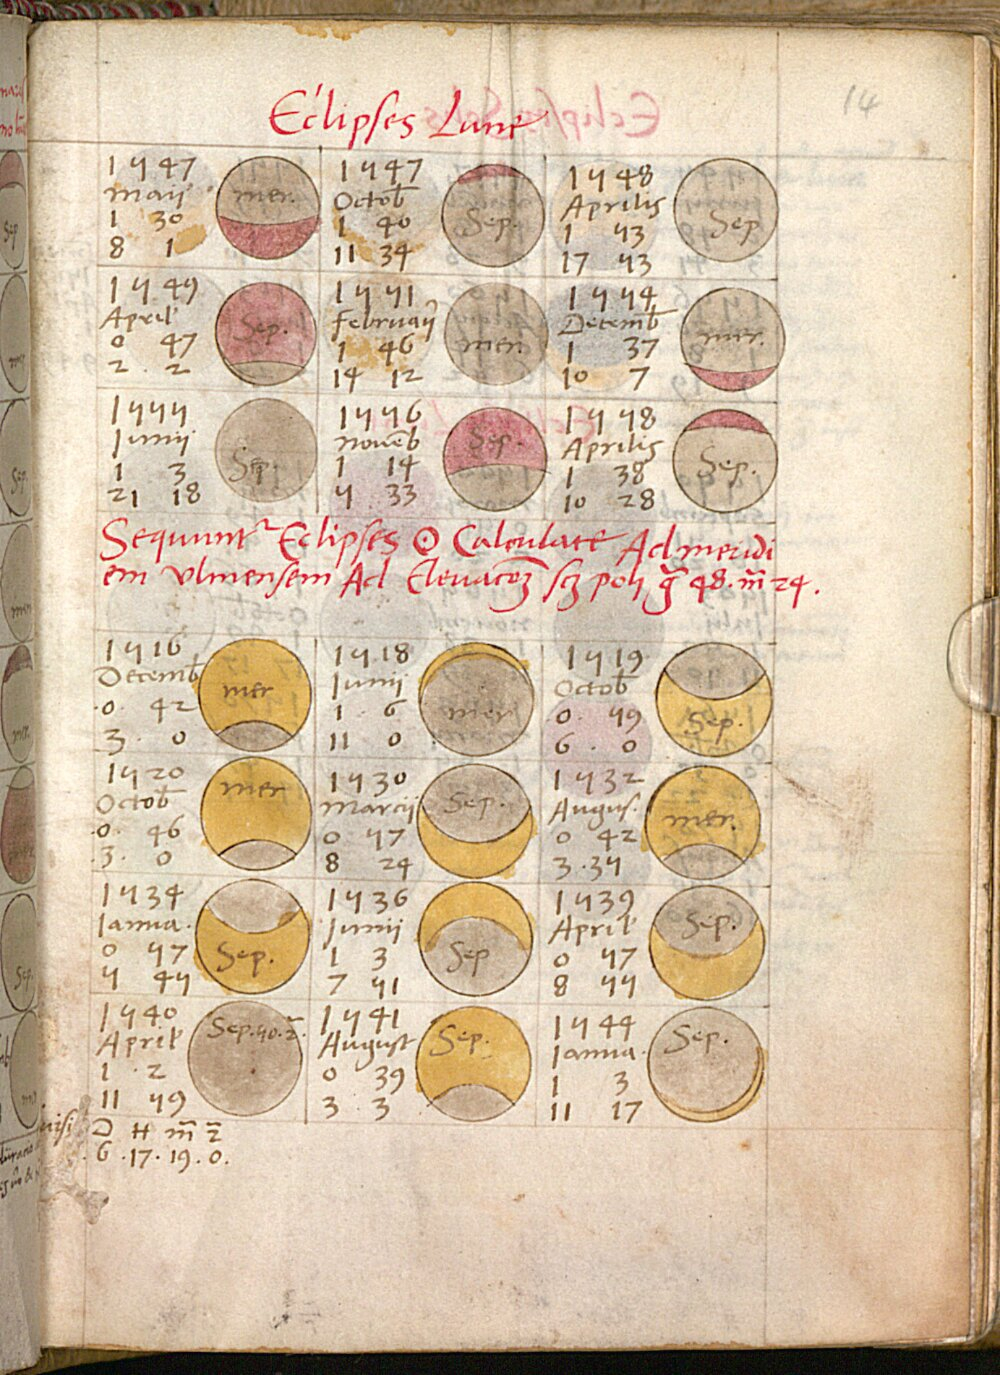 14
Eclipses Lune
1547
Maij
1 30
8 1
mer.
1547
Octob
1 40
11 34
Sep.
1548
Aprilis
1 53
17 53
Sep
1549
April
0 57
2 2
Sep.
1551
Februaij
1 46
14 12
mer.
1554
Decemb
1 37
10 7
mer.
1555
Junij
1 3
21 18
Sep.
1556
Noueb
1 14
5 33
Sep.
1558
Aprilis
1 38
10 28
Sep.
Sequunt Eclipses ☉ Calculate Ad meridi
em vlmensem Ad Eleuacoꝫ scꝫ poli g̃ 48. m̃ 24.
1516
Decemb
0. 42
3. 0
mer
1518
Junij
1. 6
11 0
mer
1519
Octob
0. 59
6. 0
Sep.
1520
Octob
0. 46
3. 0
mer
1530
Marcij
0 57
8 24
Sep.
1532
Augus.
0 42
3. 35
mer.
1534
Janua.
0 57
5 55
Sep.
1536
Junij
1 3
7 51
Sep
1539
April
0 57
8 55
Sep.
1540
April
1 . 2
11 59
Sep. 50. 2̃.
1541
August
0 39
3 . 3
Sep.
1544
Janua.
1 3
11 17
Sep.
D H m̃ 2̃
6. 17. 19. 0.